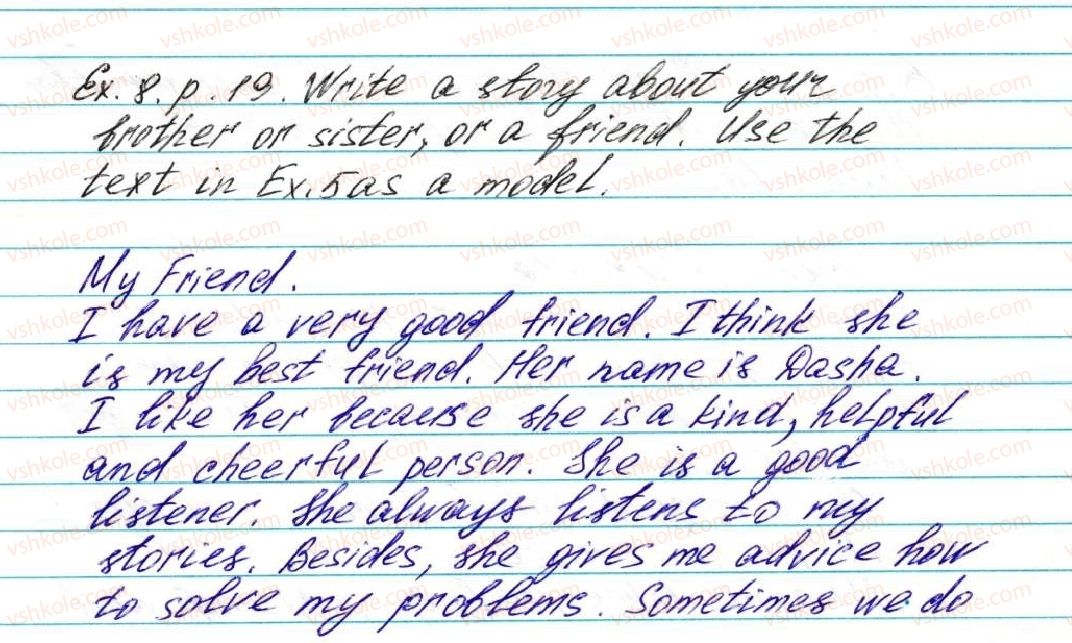 Ex. 8. p. 19. Write a story about your
brother or sister, or a friend. Use the
text in Ex. 5 as a model.
My Friend.
I have a very good friend. I think she
is my best friend. Her name is Dasha.
I like her because she is a kind, helpful
and cheerful person. She is a good
listener. She always listens to my
stories. Besides, she gives me advice how
to solve my problems. Sometimes we do